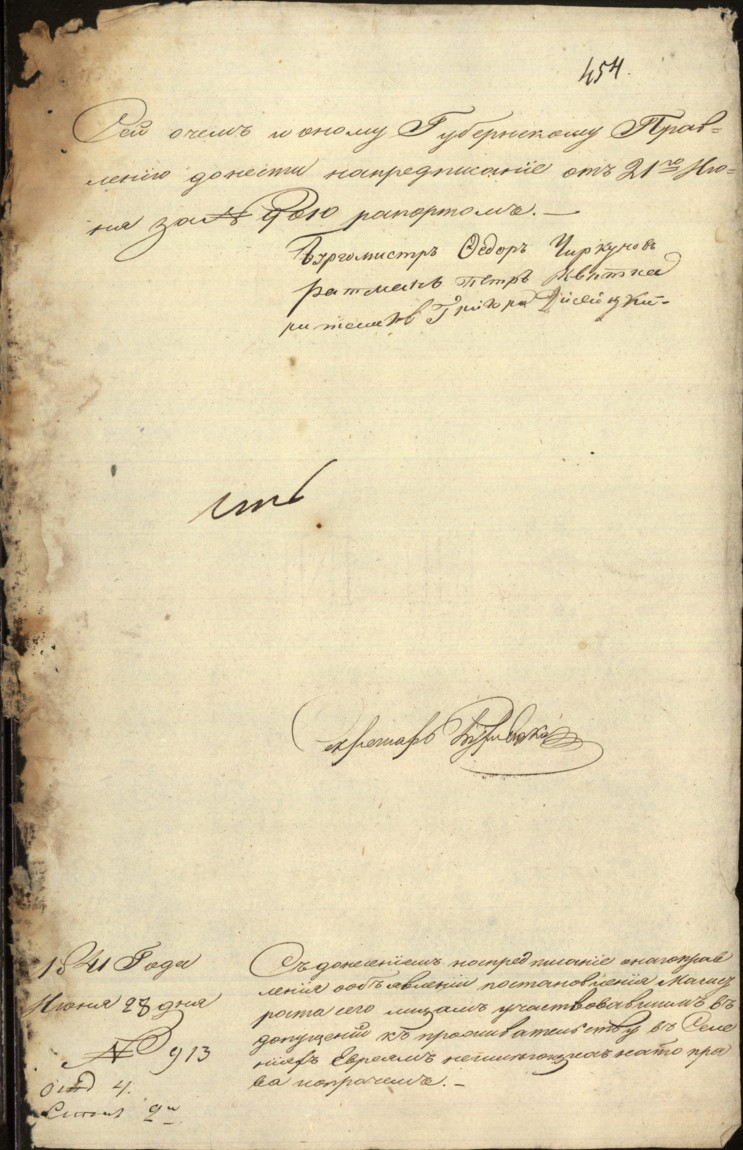 454.
Сей о чемъ и оному Губернскому Прав-
лению донести на предписание отъ 21го Ию-
ня за № рапортомъ. —
Бургомистръ Ѳедоръ Чиркуновъ
ратманъ петръ Квитка
ратманъ
Секретарь
1841 Года
Июня 28 дня
№ 913
Отд 4.
Съ донесениемъ на предписание онаго прав
ления о объявлении постановления Магист
рата сего лицамъ участвовавшимъ въ
допущении къ проживательству въ Селе
нияхъ Евреямъ неимеющихъ на то пра
ва —